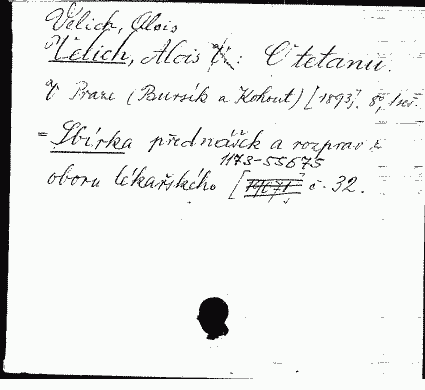 Velich, Alois
Velich, Alois : O tetanu.
V Praze (Bursík a Kohout) [1893]. 8°, 1 seš.
= Sbírka přednášek a rozprav z
1173-55675
oboru lékařského [ č. 32.